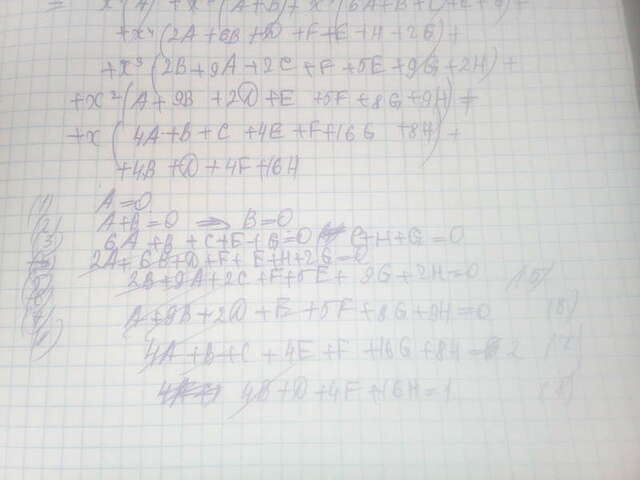 = x⁷(A) + x⁶(A+B) + x⁵(6A+B+C+E+G)+
+x⁴(2A+6B+D+F+E+H+2G)+
+x³(2B+9A+2C+F+5E+9G+2H)+
+x²(A+9B+2D+E+5F+8G+9H)+
+x(4A+B+C+4E+F+16G+8H)+
+4B+D+4F+16H
(1) A=0
(2) A+B=0 ⇒ B=0
(3) 6A+B+C+E+G=0
2A+6B+D+F+E+H+2G=0
2B+9A+2C+F+5E+9G+2H=0
A+9B+2D+E+5F+8G+9H=0 (6)
4A+B+C+4E+F+16G+8H=2 (7)
4B+D+4F+16H=1